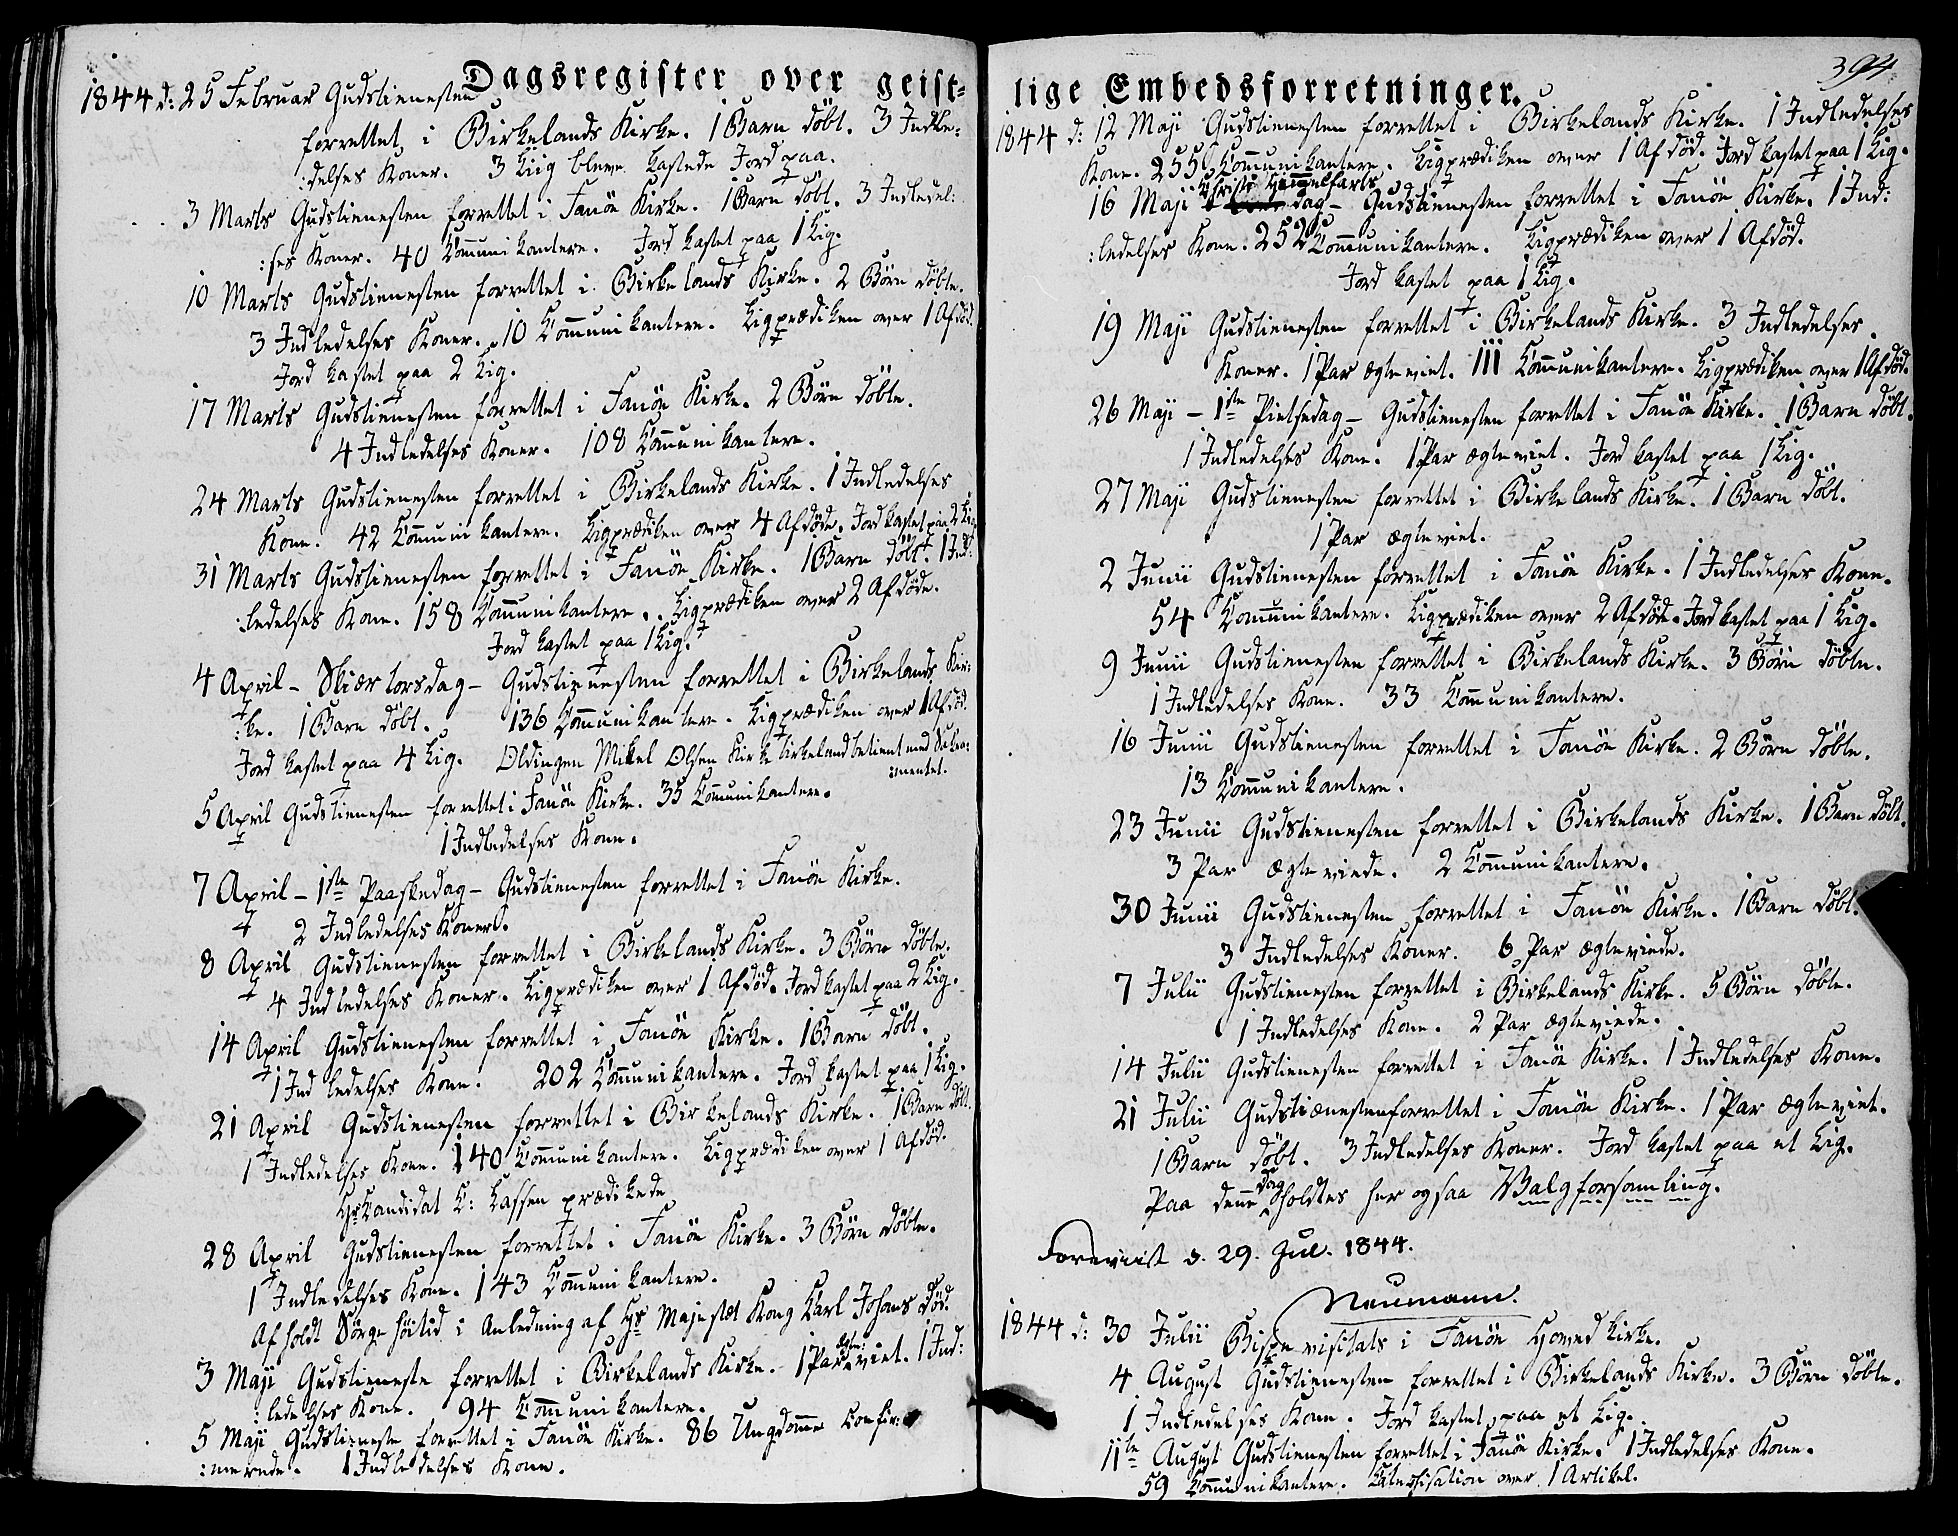 Dagsregister over geist=
1844 d: 25 Februar Gudstienesten
forrettet i Birkelands Kirke. 1 Barn döbt. 3 Indle:
:delses Koner. 3 Liig bleve kastede Jord paa.
3 Marts Gudstienesten forrettet i Fanöe Kirke. 1 Barn döbt. 3 Indledel:
:ses Koner. 40 Communikantere. Jord kastet paa 1 Lig.
10 Marts Gudstienesten forrettet i Birkelands Kirke. 2 Börn döbte.
3 Indledelses Koner. 10 Communikantere. Ligprædiken over 1 Afdöd.
Jord kastet paa 2 Lig.
17 Marts Gudstienesten forrettet i Fanöe Kirke. 2 Börn döbte.
4 Indledelses Koner. 108 Communikantere.
24 Marts Gudstienesten forrettet i Birkelands Kirke. 1 Indledelses
Kone. 42 Communikantere. Ligprædiken over 4 Afdöde. Jord kastet paa 2 Lig
31 Marts Gudstienesten forrettet i Fanöe Kirke. 1 Barn döbt. 1 Ind:
:ledelses Kone. 158 Communikantere. Ligprædiken over 2 Afdöde.
Jord kastet paa 1 Lig.
4 April - Skiærtorsdag - Gudstienesten forrettet i Birkelands Kir:
:ke. 1 Barn döbt. 136 Communikantere. Ligprædiken over 1 Afdöd.
Jord kastet paa 4 Lig. Oldingen Mikel Olsen Kirkebirkeland betient med Sakra:
:mentet.
5 April Gudstienesten forrettet i Fanöe Kirke. 35 Communikantere.
1 Indledelses Kone.
7 April - 1ste Paaskedag - Gudstienesten forrettet i Fanöe Kirke.
2 Indledelses Koner.
8 April Gudstienesten forrettet i Birkelands Kirke. 3 Börn döbte.
4 Indledelses Koner. Ligprædiken over 1 Afdöd. Jord kastet paa 2 Lig.
14 April Gudstienesten forrettet i Fanöe Kirke. 1 Barn döbt.
1 Indledelses Kone. 202 Communikantere. Jord kastet paa 1 Lig.
21 April Gudstienesten forrettet i Birkelands Kirke. 1 Barn döbt.
1 Indledelses Kone. 140 Communikantere. Ligprædiken over 1 Afdöd.
Hr Candidat C: Lassen prædikede
28 April Gudstienesten forrettet i Fanöe Kirke. 3 Börn döbte.
1 Indledelses Kone. 143 Communikantere.
Afholdt Sörgehöitid i Anledning af Hs Majestæt Kong Carl Johans Död.
3 Maji Gudstieneste forrettet i Birkelands Kirke. 1 Par ægte: viet. 1 Ind:
:ledelses Kone. 94 Communikantere.
5 Maji Gudstieneste forrettet i Fanöe Kirke. 86 Ungdomme Confir:
:merede. 1 Indledelses Kone.
394.
lige Embedsforretninger.
1844 d: 12 Maji Gudstienesten forrettet i Birkelands Kirke. 1 Indledelses
Kone. 255 Communikantere. Ligprædiken over 1 Afdöd. Jord kastet paa 1 Lig.
16 Maji Christi Himmelfarts dag - Gudstienesten forrettet i Fanöe Kirke. 1 Ind:
:ledelses Kone. 252 Communikantere. Ligprædiken over 1 Afdöd.
Jord kastet paa 1 Lig.
19 Maji Gudstienesten forrettet i Birkelands Kirke. 3 Indledelses
Koner. 1 Par ægteviet. 111 Communikantere. Ligprædiken over 1 Afdöd.
26 Maji - 1ste Pintsedag - Gudstienesten forrettet i Fanöe Kirke. 1 Barn döbt.
1 Indledelses Kone. 1 Par ægteviet. Jord kastet paa 1 Lig.
27 Maji Gudstienesten forrettet i Birkelands Kirke. 1 Barn döbt.
1 Par ægteviet.
2 Junii Gudstienesten forrettet i Fanöe Kirke. 1 Indledelses Kone.
54 Communikantere. Ligprædiken over 2 Afdöde. Jord kastet paa 1 Lig.
9 Junii Gudstienesten forrettet i Birkelands Kirke. 3 Börn döbte.
1 Indledelses Kone. 33 Communikantere.
16 Junii Gudstienesten forrettet i Fanöe Kirke. 2 Börn döbte.
13 Communikantere.
23 Junii Gudstienesten forrettet i Birkelands Kirke. 1 Barn döbt.
3 Par ægteviede. 2 Communikantere.
30 Junii Gudstienesten forrettet i Fanöe Kirke. 1 Barn döbt.
3 Indledelses Koner. 6 Par ægteviede.
7 Julii Gudstienesten forrettet i Birkelands Kirke. 5 Börn döbte.
1 Indledelses Kone. 2 Par ægteviede.
14 Julii Gudstienesten forrettet i Fanöe Kirke. 1 Indledelses Kone.
21 Julii Gudstienesten forrettet i Fanöe Kirke. 1 Par ægteviet.
1 Barn döbt. 3 Indledelses Koner. Jord kastet paa et Lig.
Paa denne Dag holdtes her ogsaa Valgforsamling.
Foreviist d. 29. Jul. 1844.
Neumann.
1844 d: 30 Julii Bispevisitats i Fanöe Hovedkirke.
4 August Gudstienesten forrettet i Birkelands Kirke. 3 Börn döbte.
1 Indledelses Kone. Jord kastet paa et Lig.
11te August Gudstienesten forrettet i Fanöe Kirke. 1 Indledelses Kone.
59 Communikantere. Catechisation over 1 Artikel.